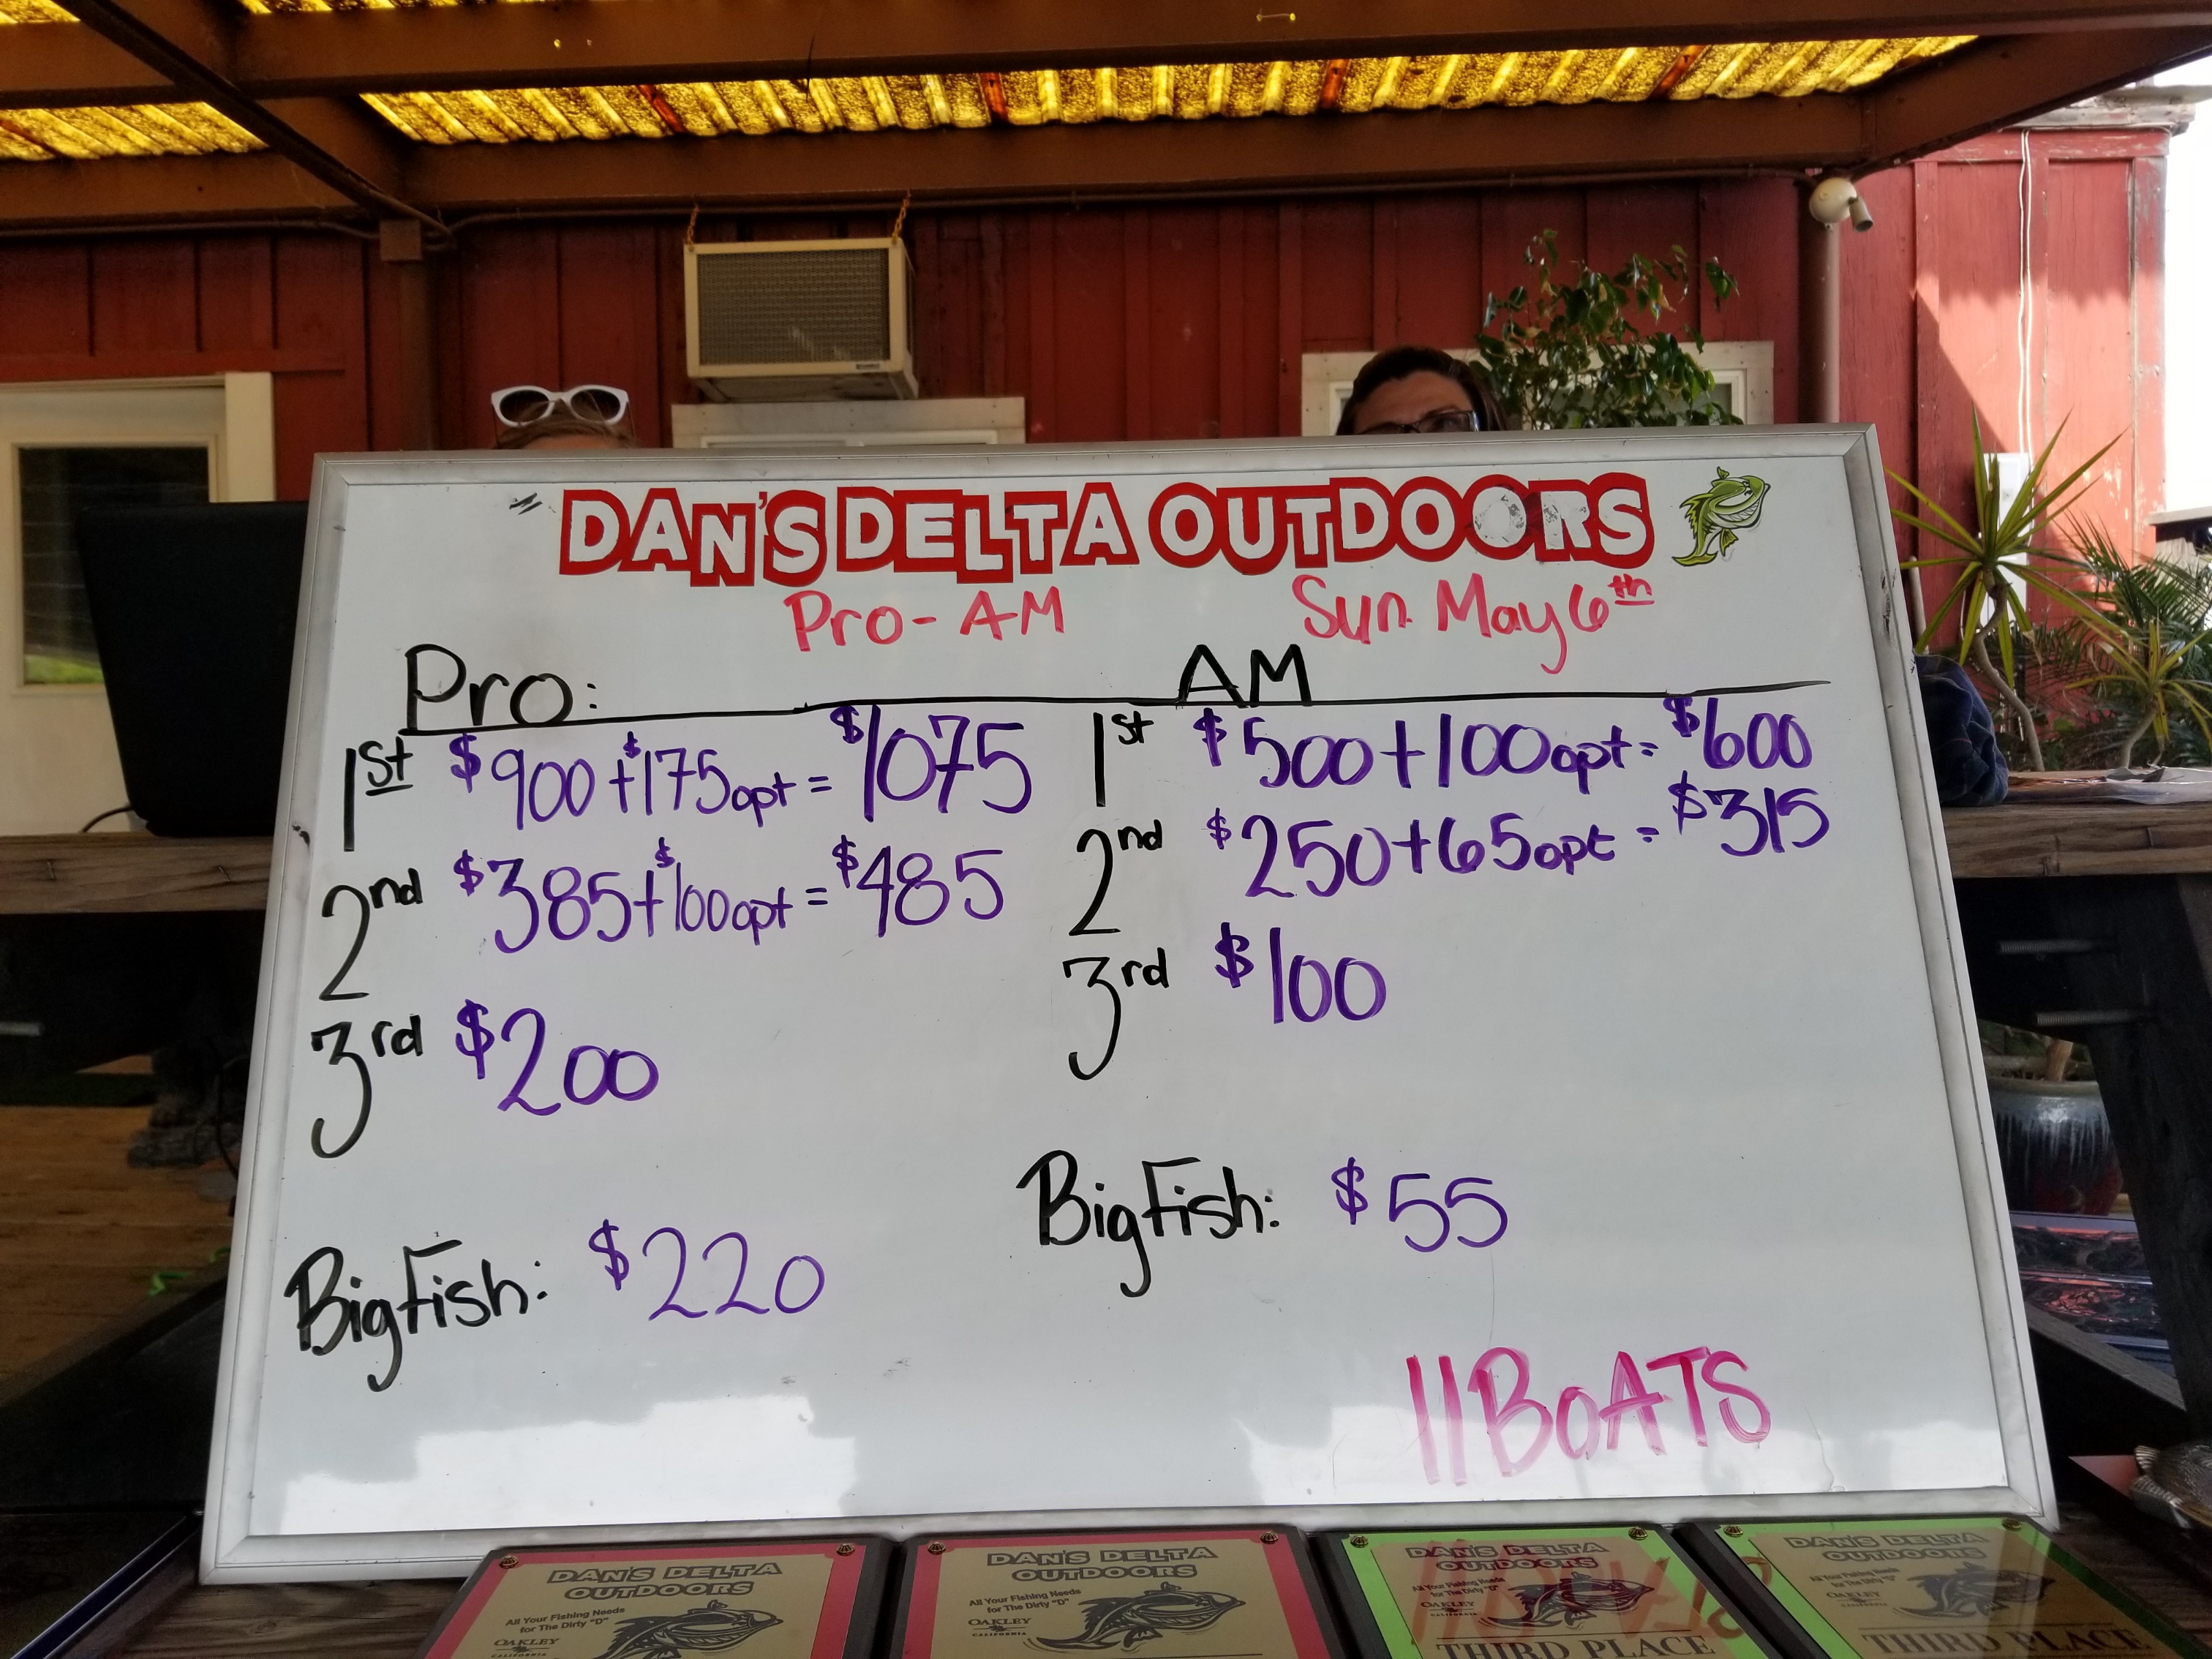 DAN'S DELTA OUTDOORS
Pro-AM Sun. May 6th
Pro:
1st $900+$175opt = $1075
2nd $385+$100opt = $485
3rd $200
BigFish: $220
AM
1st $500+100opt= $600
2nd $250+65opt = $315
3rd $100
BigFish: $55
11 BOATS
DAN'S DELTA
OUTDOORS
All Your Fishing Needs
for The Dirty "D"
OAKLEY
CALIFORNIA
DAN'S DELTA
OUTDOORS
All Your Fishing Needs
for The Dirty "D"
OAKLEY
CALIFORNIA
DAN'S DELTA
OUTDOORS
All Your Fishing Needs
for The Dirty "D"
OAKLEY
CALIFORNIA
THIRD PLACE
DAN'S DELTA
OUTDOORS
All Your Fishing Needs
for The Dirty "D"
OAKLEY
CALIFORNIA
THIRD PLACE